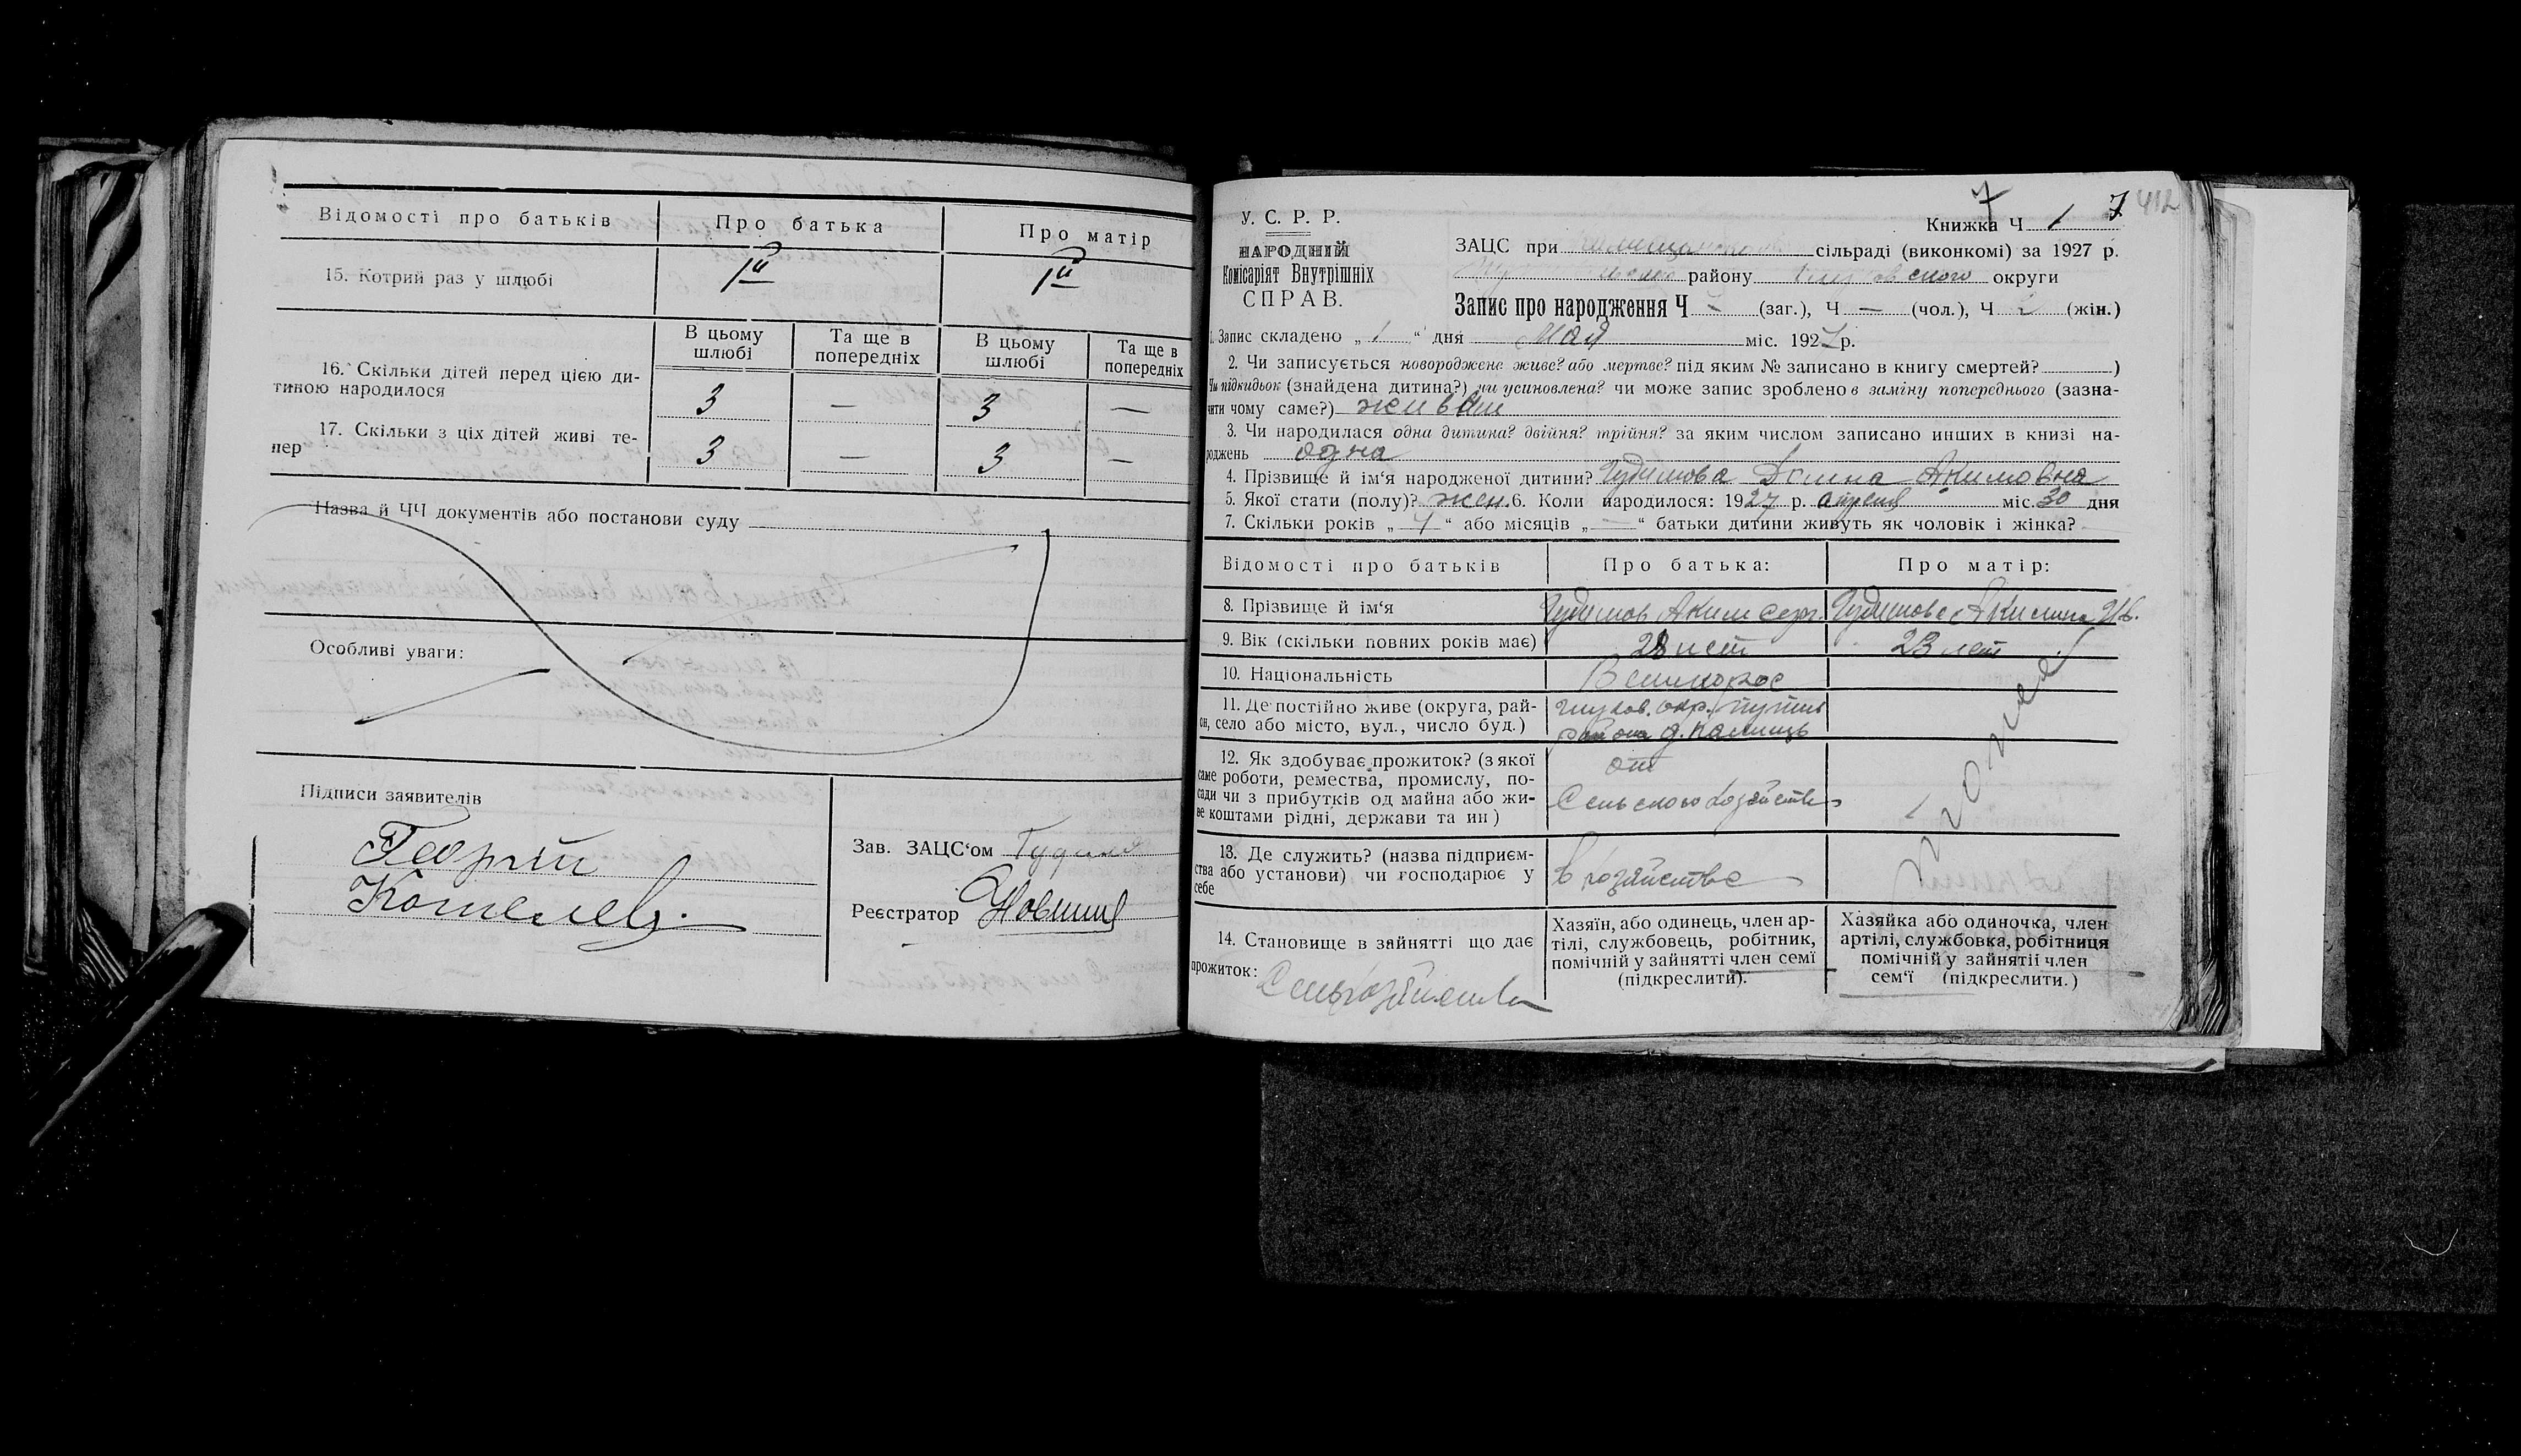 Відомості про батьків
Про батька
Про матір
15. Котрий раз у шлюбі
1й
1й
В цьому шлюбі
Та ще в попередніх
В цьому шлюбі
Та ще в попередніх
16. Скільки дітей перед цією ди-
тиною народилося
3
—
3
—
17. Скільки з ціх дітей живі те-
пер
3
—
3
—
Назва й ЧЧ документів або постанови суду
Особливі уваги:
Підписи заявителів
Георгій
Кошелев.
Зав. ЗАЦС‘ом
Реєстратор
7
7
412
У. С. Р. Р.
Книжка Ч 1
НАРОДНІЙ
Комісаріят Внутрішніх
СПРАВ.
ЗАЦС при сільраді (виконкомі) за 1927 р.
району округи
Запис про народження Ч 7 (заг.), Ч — (чол.), Ч 2 (жін.)
1. Запис складено „ 1 “ дня Мая міс. 1927 р.
2. Чи записується новороджене живе? або мертве? під яким № записано в книгу смертей? )
Чи підкидьок (знайдена дитина?) чи усиновлена? чи може запис зроблено в заміну попереднього (зазна-
чити чому саме?)
3. Чи народилася одна дитина? двійня? трійня? за яким числом записано инших в книзі на-
роджень одна
4. Прізвище й ім‘я народженої дитини? Акимовна
5. Якої стати (полу)? жен. 6. Коли народилося: 1927 р. апреля міс. 30 дня
7. Скільки років „ 4 “ або місяців „ — “ батьки дитини живуть як чоловік і жінка?
Відомості про батьків
Про батька:
Про матір:
8. Прізвище й ім‘я
Аким Серг.
Акилина
9. Вік (скільки повних років має)
28 лет
23 лет
10. Національність
Великорос
11. Де постійно живе (округа, рай-
он, село або місто, вул., число буд.)
Глухов. окр. Путив
района д.
12. Як здобуває прожиток? (з якої
саме роботи, ремества, промислу, по-
сади чи з прибутків од майна або жи-
ве коштами рідні, держави та ин)
от
Сельского хозяйства
13. Де служить? (назва підприєм-
ства або установи) чи господарює у
себе
в хозяйстве
тоже
14. Становище в зайнятті що дає
прожиток:
Сельхозяйства
Хазяїн, або одинець, член ар-
тілі, службовець, робітник,
помічній у зайнятті член семї
(підкреслити).
Хазяйка або одиночка, член
артілі, службовка, робітниця
помічній у зайнятіі член
сем‘ї (підкреслити.)